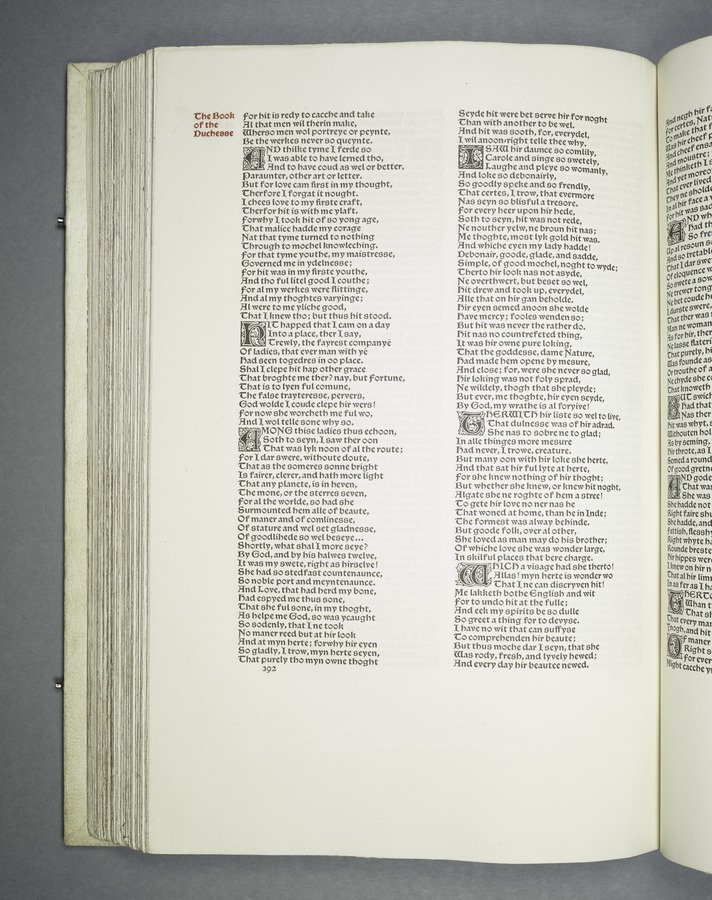 The Book
of the
Duchesse
For hit is redy to cacche and take
Al that men wil therin make,
Wherso men wol portreye or peynte,
Be the werkes never so queynte.
AND thilke tyme I ferde so
I was able to have lerned tho,
And to have coud as wel or better,
Paraunter, other art or letter.
But for love cam first in my thought,
Therfore I forgat it nought.
I chees love to my firste craft,
Therfor hit is with me ylaft.
Forwhy I took hit of so yong age,
That malice hadde my corage
Nat that tyme turned to nothing
Through to mochel knowleching.
For that tyme youthe, my maistresse,
Governed me in ydelnesse;
For hit was in my firste youthe,
And tho ful litel good I couthe;
For al my werkes were flittinge,
And al my thoghtes varyinge;
Al were to me yliche good,
That I knew tho; but thus hit stood.
HIT happed that I cam on a day
Into a place, ther I say,
Trewly, the fayrest companye
Of ladies, that ever man with ye
Had seen togedres in oo place.
Shal I clepe hit hap other grace
That broghte me ther? nay, but Fortune,
That is to lyen ful comune,
The false trayteresse, pervers,
God wolde I coude clepe hir wers!
For now she worcheth me ful wo,
And I wol telle sone why so.
AMONG thise ladies thus echoon,
Soth to seyn, I saw ther oon
That was lyk noon of al the route;
For I dar swere, withoute doute,
That as the someres sonne bright
Is fairer, clerer, and hath more light
Than any planete, is in heven,
The mone, or the sterres seven,
For al the worlde, so had she
Surmounted hem alle of beaute,
Of maner and of comlinesse,
Of stature and wel set gladnesse,
Of goodlihede so wel beseye...
Shortly, what shal I more seye?
By God, and by his halwes twelve,
It was my swete, right as hirselve!
She had so stedfast countenaunce,
So noble port and meyntenaunce.
And Love, that had herd my bone,
Had espyed me thus sone,
That she ful sone, in my thoght,
As helpe me God, so was ycaught
So sodenly, that I ne took
No maner reed but at hir look
And at myn herte; forwhy hir eyen
So gladly, I trow, myn herte seyen,
That purely tho myn owne thoght
392
Seyde hit were bet serve hir for noght
Than with another to be wel.
And hit was sooth, for, everydel,
I wil anoon right telle thee why.
I SAW hir daunce so comlily,
Carole and singe so swetely,
Laughe and pleye so womanly,
And loke so debonairly,
So goodly speke and so frendly,
That certes, I trow, that evermore
Nas seyn so blisful a tresore.
For every heer upon hir hede,
Soth to seyn, hit was not rede,
Ne nouther yelw, ne broun hit nas;
Me thoghte, most lyk gold hit was.
And whiche eyen my lady hadde!
Debonair, goode, glade, and sadde,
Simple, of good mochel, noght to wyde;
Therto hir look nas not asyde,
Ne overthwert, but beset so wel,
Hit drew and took up, everydel,
Alle that on hir gan beholde.
Hir eyen semed anoon she wolde
Have mercy; fooles wenden so;
But hit was never the rather do.
Hit nas no countrefeted thing,
It was hir owne pure loking,
That the goddesse, dame Nature,
Had made hem opene by mesure,
And close; for, were she never so glad,
Hir loking was not foly sprad,
Ne wildely, thogh that she pleyde;
But ever, me thoghte, hir eyen seyde,
By God, my wrathe is al foryive!
THERWITH hir liste so wel to live,
That dulnesse was of hir adrad.
She nas to sobre ne to glad;
In alle thinges more mesure
Had never, I trowe, creature.
But many oon with hir loke she herte,
And that sat hir ful lyte at herte,
For she knew nothing of hir thoght;
But whether she knew, or knew hit noght,
Algate she ne roghte of hem a stree!
To gete hir love no ner nas he
That woned at home, than he in Inde;
The formest was alway behinde.
But goode folk, over al other,
She loved as man may do his brother;
Of whiche love she was wonder large,
In skilful places that bere charge.
WHICH a visage had she therto!
Allas! myn herte is wonder wo
That I ne can discryven hit!
Me lakketh bothe English and wit
For to undo hit at the fulle;
And eek my spirits be so dulle
So greet a thing for to devyse.
I have no wit that can suffyse
To comprehenden hir beaute;
But thus moche dar I seyn, that she
Was rody, fresh, and lyvely hewed;
And every day hir beautee newed.